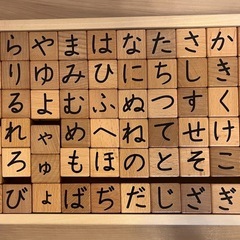 らやまはなたさか
りゆみひにちしき
るよむふぬつすく
れゃめへねてせけ
ろゅもほのとそこ
びょばぢだじざぎ